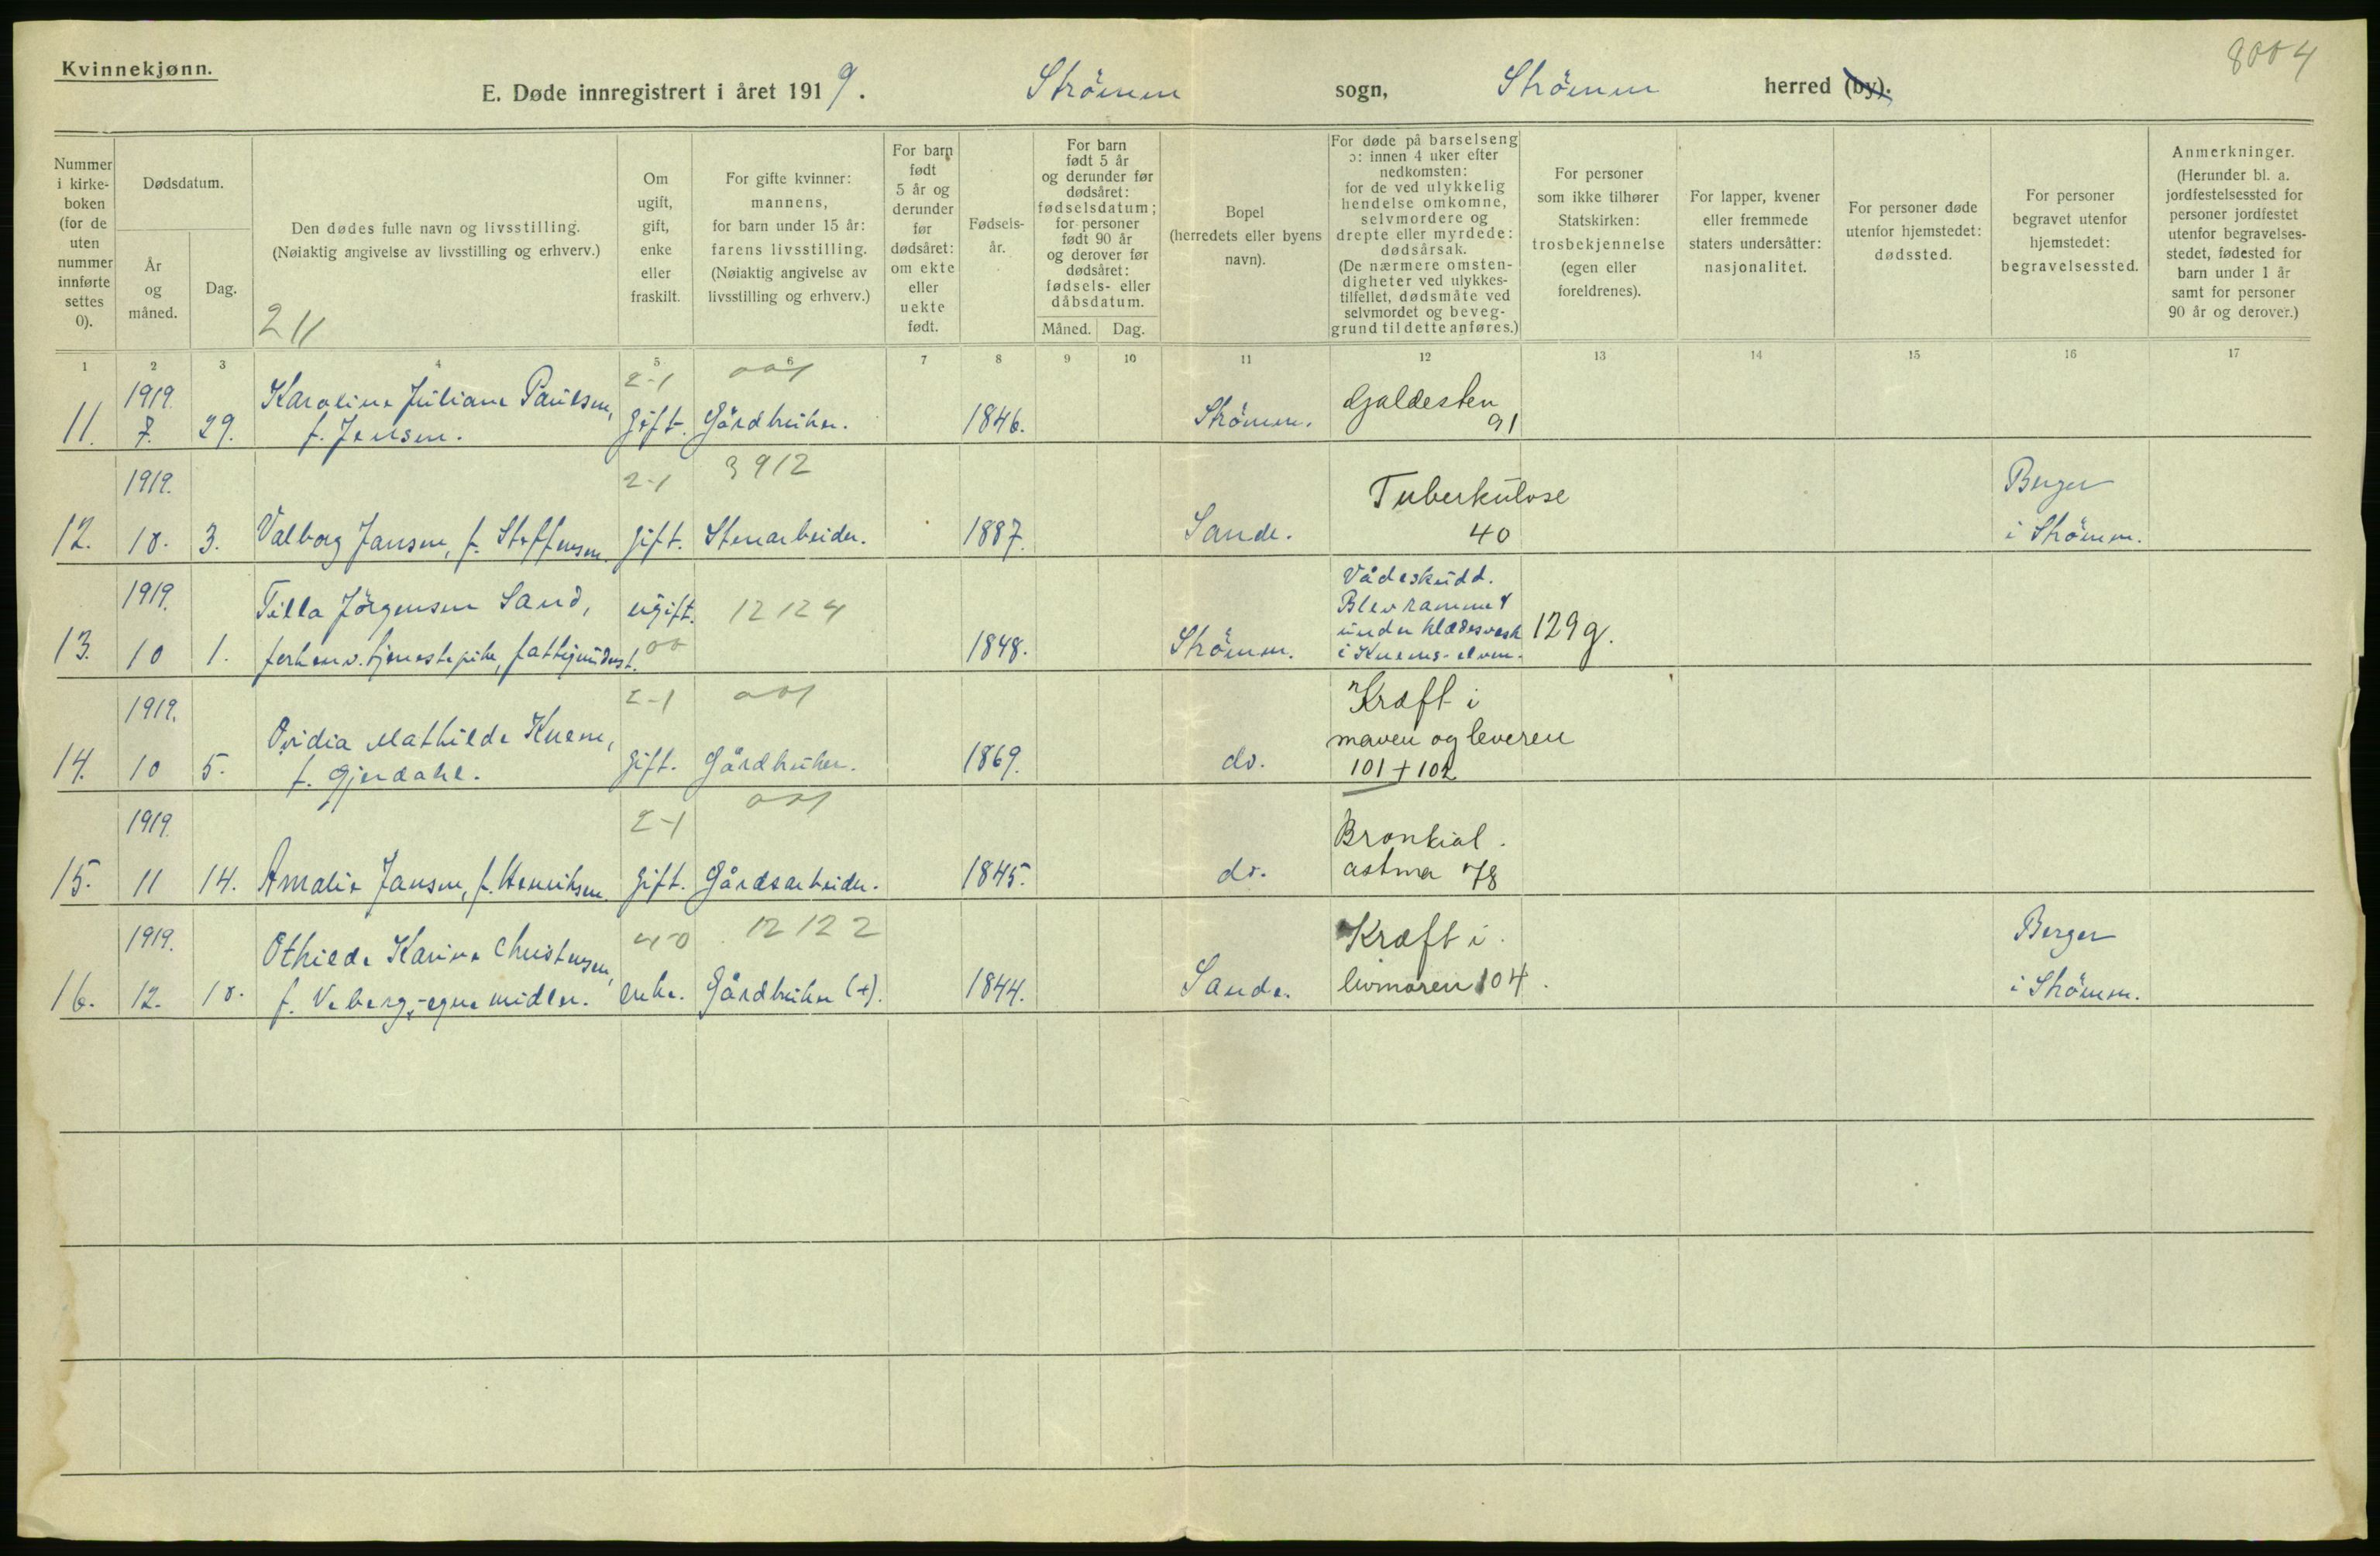 8004
Kvinnekjønn.
E. Døde innregistrert i året 1919. Strömm sogn, Strömm herred (by).
Nummer i kirke- boken (for de uten nummer innførte settes 0).
Dødsdatum.
År og måned.
Dag.
Den dødes fulle navn og livsstilling.
(Nøiaktig angivelse av livsstilling og erhverv.)
211
Om ugift, gift, enke eller fraskilt.
For gifte kvinner: mannens, for barn under 15 år: farens livsstilling. (Nøiaktig angivelse av livsstilling og erhverv.)
For barn født 5 år og derunder før dødsåret: om ekte eller uekte født.
Fødsels- år.
For barn født 5 år og derunder før dødsåret: fødselsdatum; for personer født 90 år og derover før dødsåret: fødsels- eller dåbsdatum.
Måned. Dag.
Bopel (herredets eller byens navn).
For døde på barselseng ɔ: innen 4 uker efter nedkomsten: for de ved ulykkelig hendelse omkomne, selvmordere og drepte eller myrdede: dødsårsak. (De nærmere omsten- digheter ved ulykkes- tilfellet, dødsmåte ved selvmordet og beveg- grund til dette anføres.)
For personer som ikke tilhører Statskirken: trosbekjennelse (egen eller foreldrenes).
For lapper, kvener eller fremmede staters undersåtter: nasjonalitet.
For personer døde utenfor hjemstedet: dødssted.
For personer begravet utenfor hjemstedet: begravelsessted.
Anmerkninger. (Herunder bl. a. jordfestelsessted for personer jordfestet utenfor begravelses- stedet, fødested for barn under 1 år samt for personer 90 år og derover.)
1 2 3 4 5 6 7 8 9 10 11 12 13 14 15 16 17
1919. Karoline Juliane Paulsen, 2-1 001 Galdesten
11. 7. 29. f. Jensen. Gift. Gårdbruker. 1846. Strömm. 91
1919. 2-1 3912 Tuberkulose Berger
12. 10. 3. Valborg Jansen, f. Steffensen gift. Stenarbeider. 1887. Sande. 40 i Strömm.
1919. Tilla Jörgensen Sand, ugift. 12124 Vådeskudd.
Blev rammet
under klædesvask 129g.
13. 10 1. forhenv. tjenestepike, fattigunderst. 00 1848. Strömm. i Knems-elven.
1919. 2-1 001 Kræft i
Ovidia Mathilde Knem, maven og leveren
14. 10 5. f. Gjerdahl. Gift. Gårdbruker. 1869. do. 101 + 102
1919. 2-1 001 Bronkial.
15. 11 14. Amalie Jansen, f. Henriksen Gift. Gårdsarbeider. 1845. do. astma 78
1919. Othilde Karine Christensen, 4-0 12122 Kræft i Berger
16. 12. 10. f. Veberg, - egne midler. enke. Gårdbruker (+). 1844. Sande. livmoren 104. i Strömm.